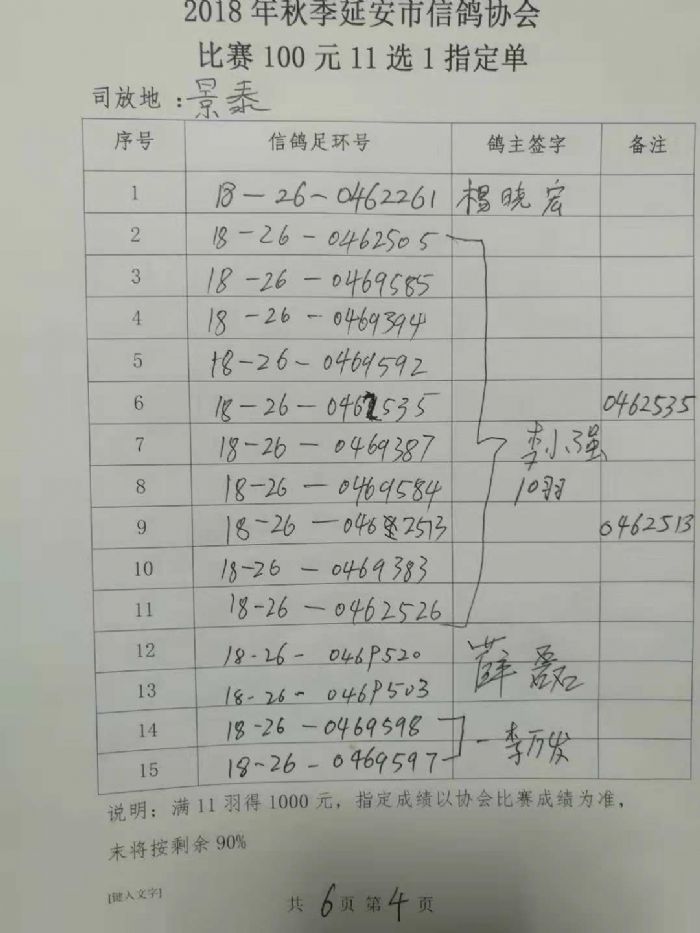 2018年秋季延安市信鸽协会
比赛100元11选1指定单
司放地：景泰
序号 信鸽足环号 鸽主签字 备注
1 18-26-0462261 杨晓宏
2 18-26-0462505
3 18-26-0469585
4 18-26-0469394
5 18-26-0469592
6 18-26-0462535 0462535
7 18-26-0469387 李小强
8 18-26-0469584 10羽
9 18-26-0462513 0462513
10 18-26-0469383
11 18-26-0462526
12 18-26-0469520 薛磊
13 18-26-0469503
14 18-26-0469598 李万发
15 18-26-0469597
说明：满11羽得1000元，指定成绩以协会比赛成绩为准，
末将按剩余90%
[键入文字]
共6页第4页